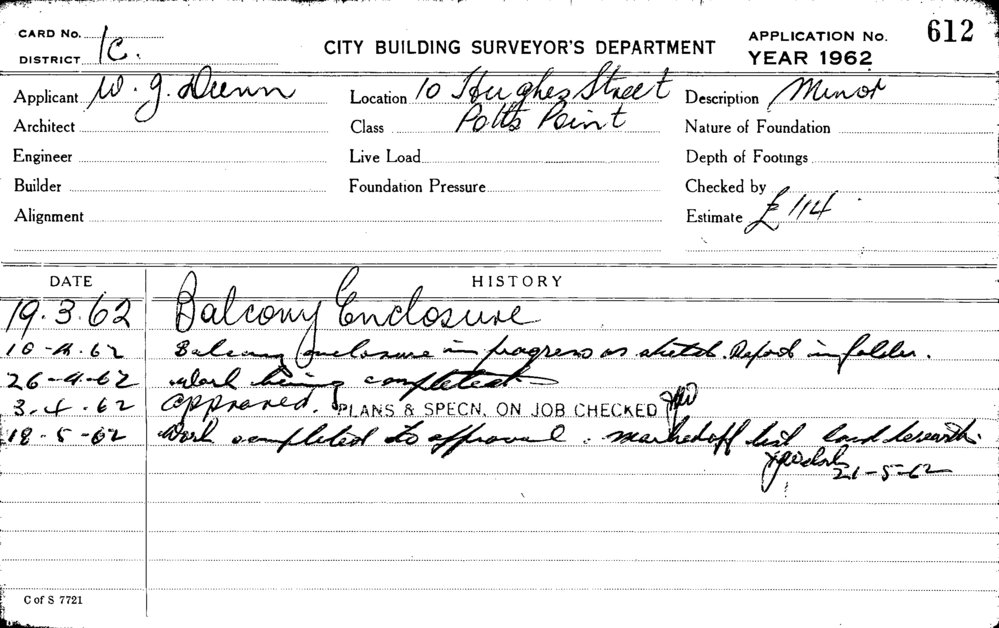 CARD No.
DISTRICT 1C.
CITY BUILDING SURVEYOR'S DEPARTMENT
APPLICATION No. 612
YEAR 1962
Applicant W. J. Dunn
Location 10 Hughes Street
Description Minor
Architect
Class Potts Point
Nature of Foundation
Engineer
Live Load
Depth of Footings
Builder
Foundation Pressure
Checked by
Alignment
Estimate £114
DATE HISTORY
19.3.62 Balcony Enclosure
10-4.62 Balcony enclosure in progress as sketch. Report in folder.
26-4-62 Work being completed
3.4.62 Approved. PLANS & SPECN. ON JOB CHECKED
18-5-62 Work completed to approval. marked off list card herewith.
21-5-62
C of S 7721